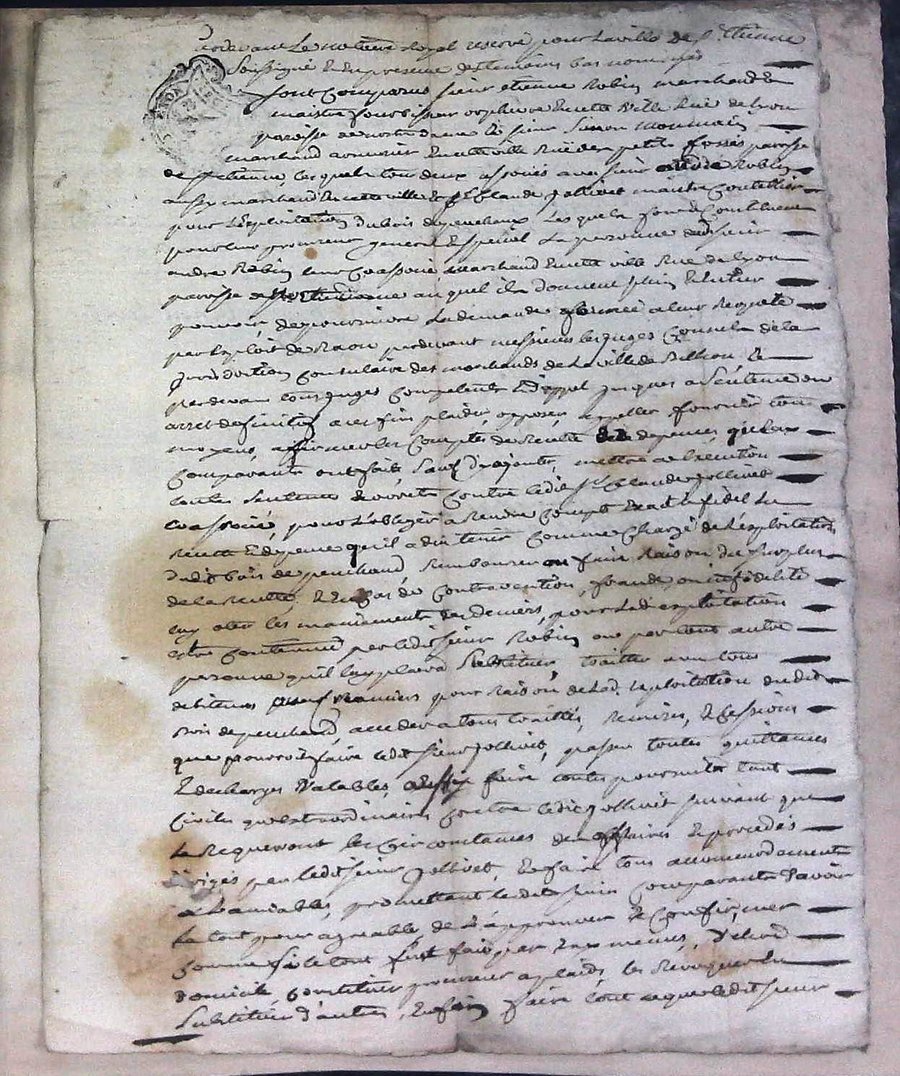 Pardevant Le notaire Royal reservé pour La ville de St Etienne
Soussigné & En presence des temoins bas nommés
sont comparus sieur etienne Robin marchand &
maitre fourbisseur orphevre En cette Ville Rue de Lyon
paroisse de notre dame & sieur Simon
marchand armurier En cette ville Rue des petits fossés paroisse
de St Etienne, lesquels tous deux associés avec sieur andré Robin
aussy marchand En cette ville & Sr Claude Jollivet maitre Coutellier
pour L'Exploitation du bois de penchaud Lesquels font & Constituent
pour leur procureur general & special La personne dudit sieur
andré Robin leur Coassocié marchand En cette ville Rue de Lyon
paroisse de auquel ils donnent plein & Entier
pouvoir de poursuivre La demande formée a leur Requete
par Exploit de pardevant messieurs les juges Consuls de la
Jurisdiction Consulaire des marchands de La ville de Billion &
pardevant tous juges Competents & d'appel jusques a Sentence ou
arret deffinitif a ces fins plaider, opposer, appeller fournir tous
moyens, affirmer les Comptes de Recette & de depense, que Les
Comparants ont faits, Sauf d'y ajouter, mettre a Execution
toutes Sentences Contre ledit Sr Claude Jollivet
Coassocié, pour L'obliger a Rendre Compte Exact & fidel de la
Recette & depense qu'il a du tenir Comme Chargé de L'Exploitation
dudit bois de penchaud, Rembourser ou faire Raison du Surplus
de la Recette, & En Cas de Contravention, fraude, ou infidelité
luy oter les maniements des deniers, pour Ladite Exploitation
etre Continuée par ledit sieur Robin ou par tout autre
personne qu'il luy plaira Substituer, traitter avec tous
debiteurs pour Raison de Lad. Exploitation dudit
bois de penchaud, acceder a tous traittés, Remises, & Cessions
que pourroit faire ledit sieur Jollivet, passer toutes quittances
& decharges Valables, aussy faire toutes poursuites tant
Civiles qu'extraordinaires Contre ledit Jollivet suivant que
Le Requerront les Circonstances des affaires & procedés
par ledit sieur Jollivet, En faire tous accommodements
a L'amiable, promettant lesdits sieurs Comparants d'avoir
Le tout pour agreable & de L'approuver & Confirmer
Comme Si le tout fust fait par Eux memes, d'Elire
domicile, Constituer procureur a plaids, les Revoquer En
Substituer d'autres, Enfin faire tout ce que ledit sieur